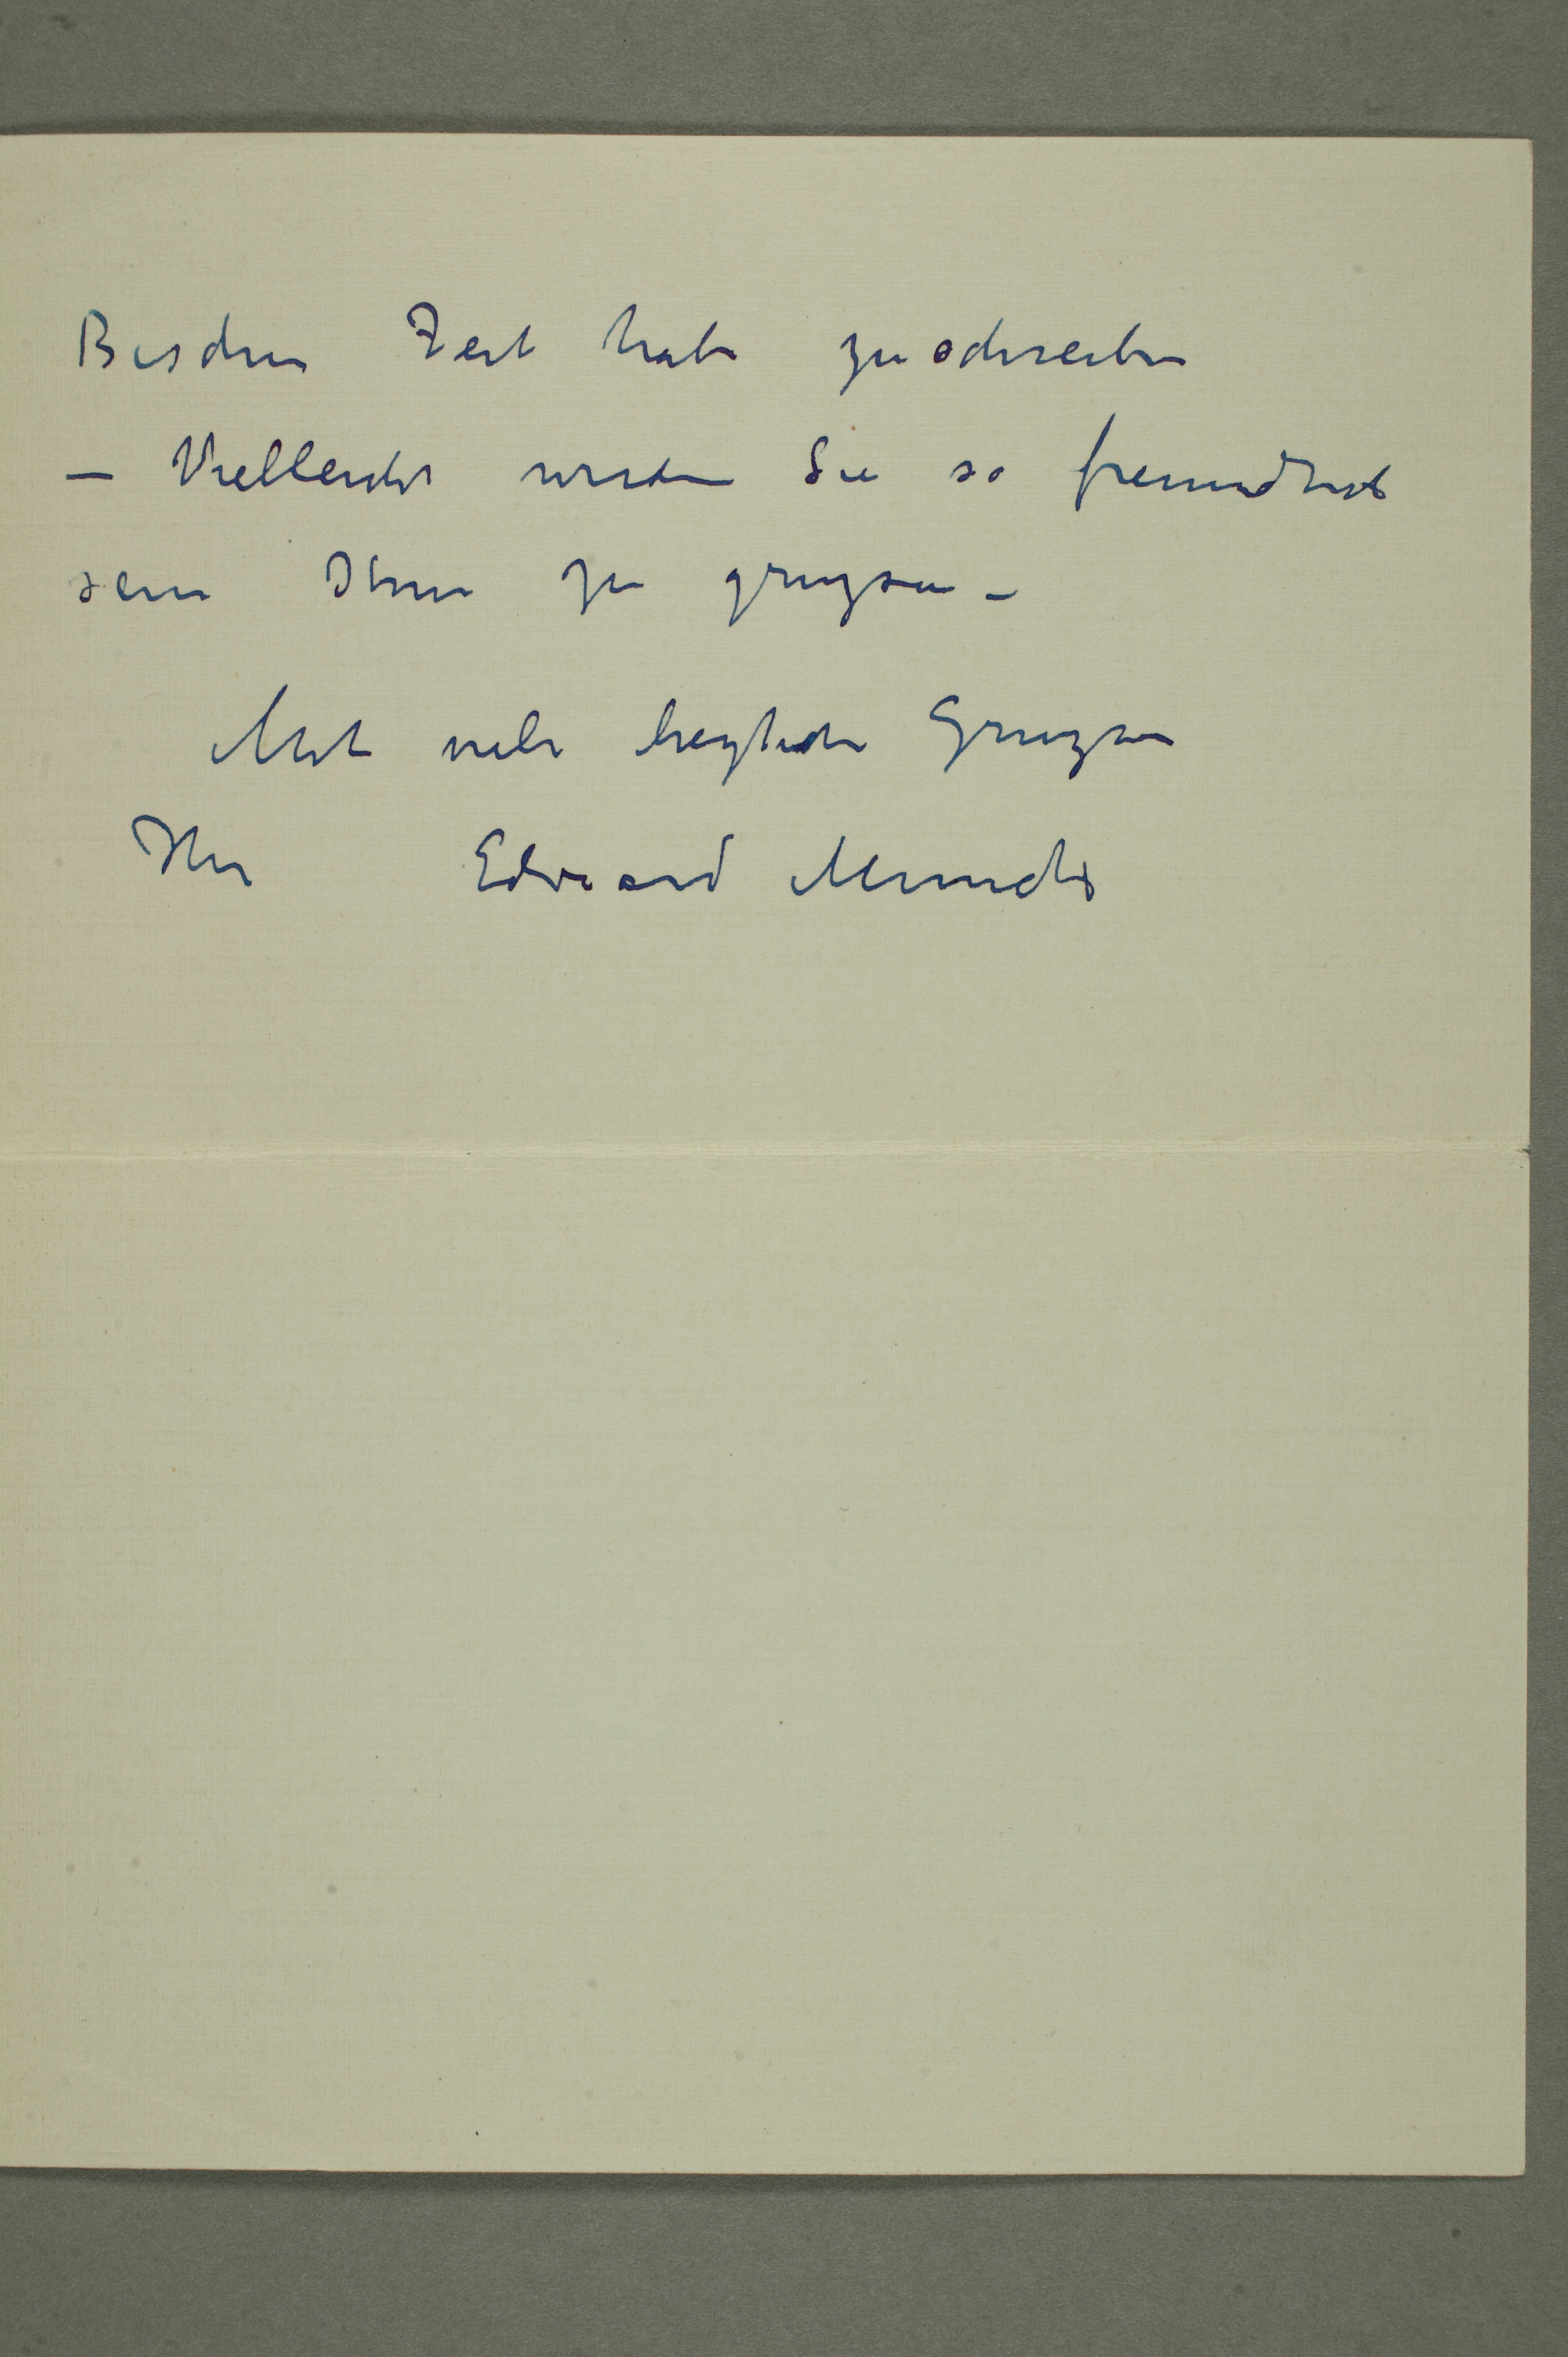 Bischen Zeit habe zu schreiben
– Vielleicht werden Sie so freundlich
sein Ihnen zu gruzsen –
Mit viele herzlichen Gruzsen
Ihr Edvard Munch